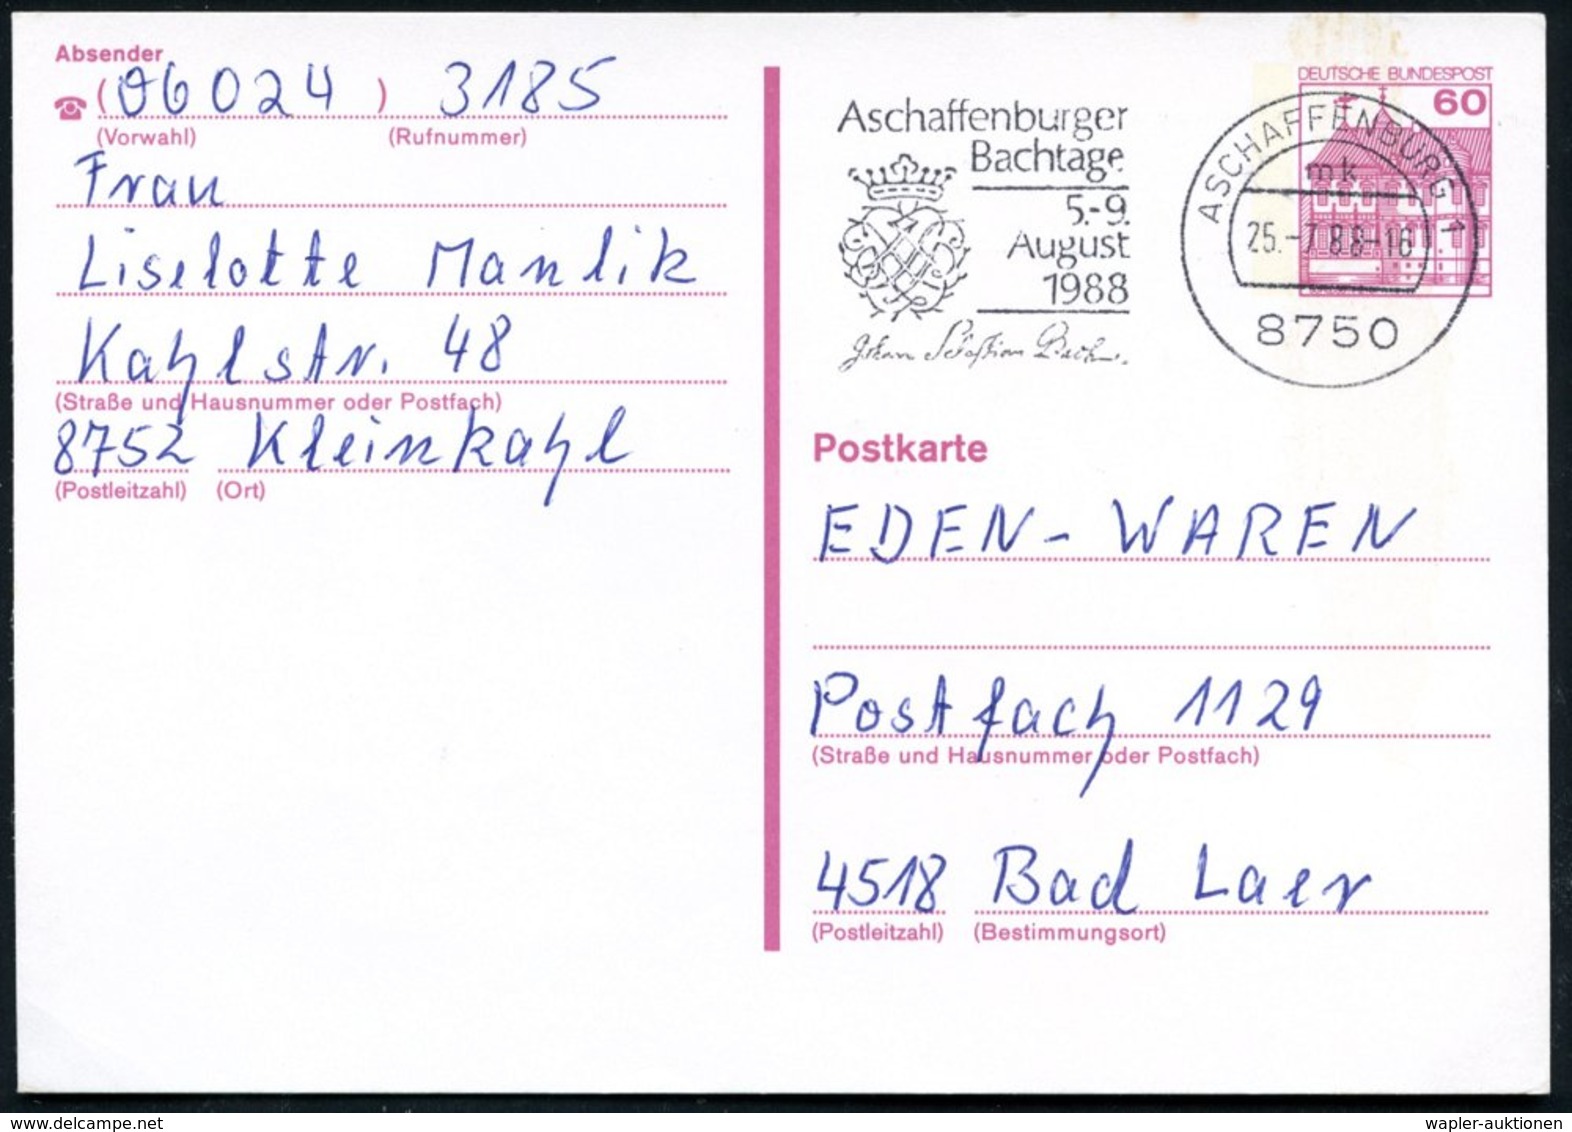 Absender
(06024) 3185
(Vorwahl) (Rufnummer)
Frau
Liselotte Manlik
Kahlstr. 48
(Straße und Hausnummer oder Postfach)
8752 Kleinkahl
(Postleitzahl) (Ort)
Aschaffenburger
Bachtage
5.-9.
August
1988
Johann Sebastian Bach.
DEUTSCHE BUNDESPOST
60
ASCHAFFENBURG 1
mk
25.-7.88-16
8750
Postkarte
EDEN-WAREN
Postfach 1129
(Straße und Hausnummer oder Postfach)
4518 Bad Laer
(Postleitzahl) (Bestimmungsort)
wapler-auktionen